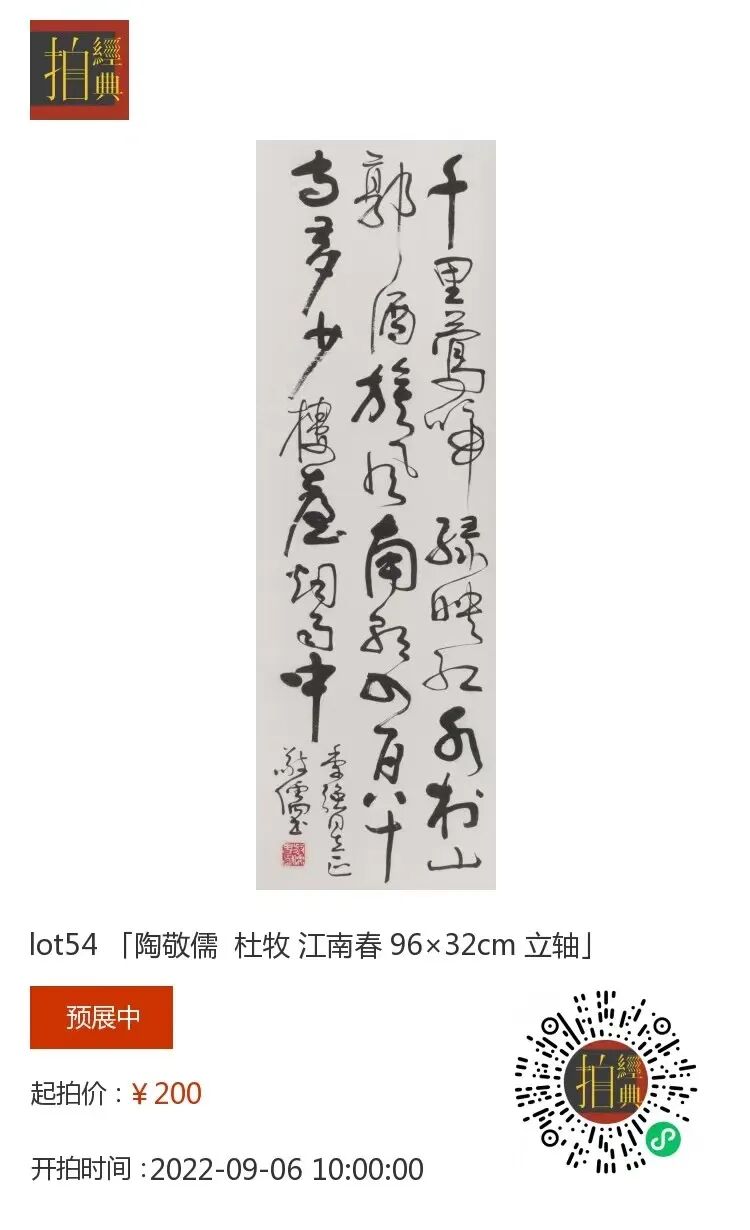 拍 經典
千里鶯啼綠映紅水村山
郭酒旗風南朝四百八十
寺多少樓臺烟雨中
强同志正
敬儒書
lot54 「陶敬儒 杜牧 江南春 96×32cm 立轴」
预展中
起拍价：¥ 200
开拍时间：2022-09-06 10:00:00
拍 經典